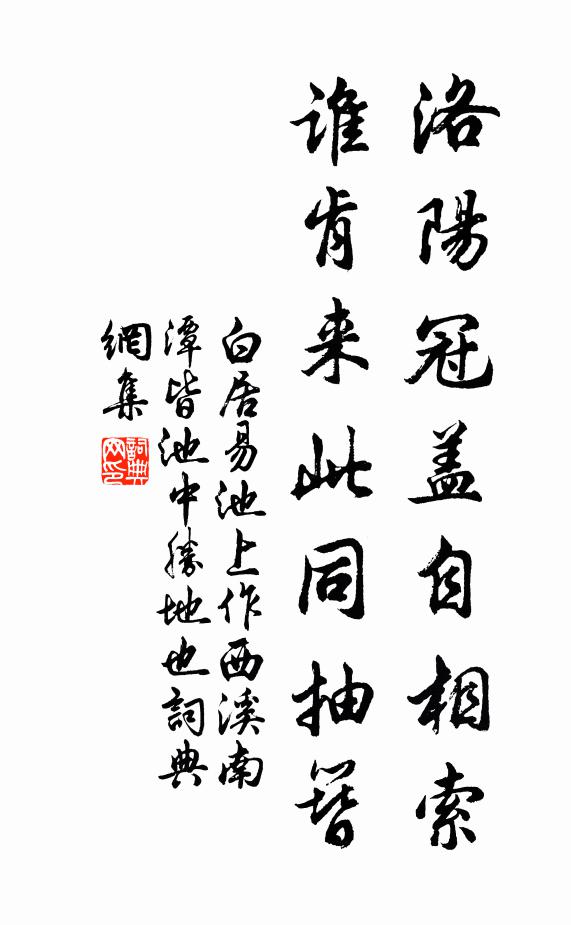 洛陽冠盖自相索
谁肯来此同抽簪
白居易池上作西溪南
潭皆池中勝地也詞典
網集
詞典网印